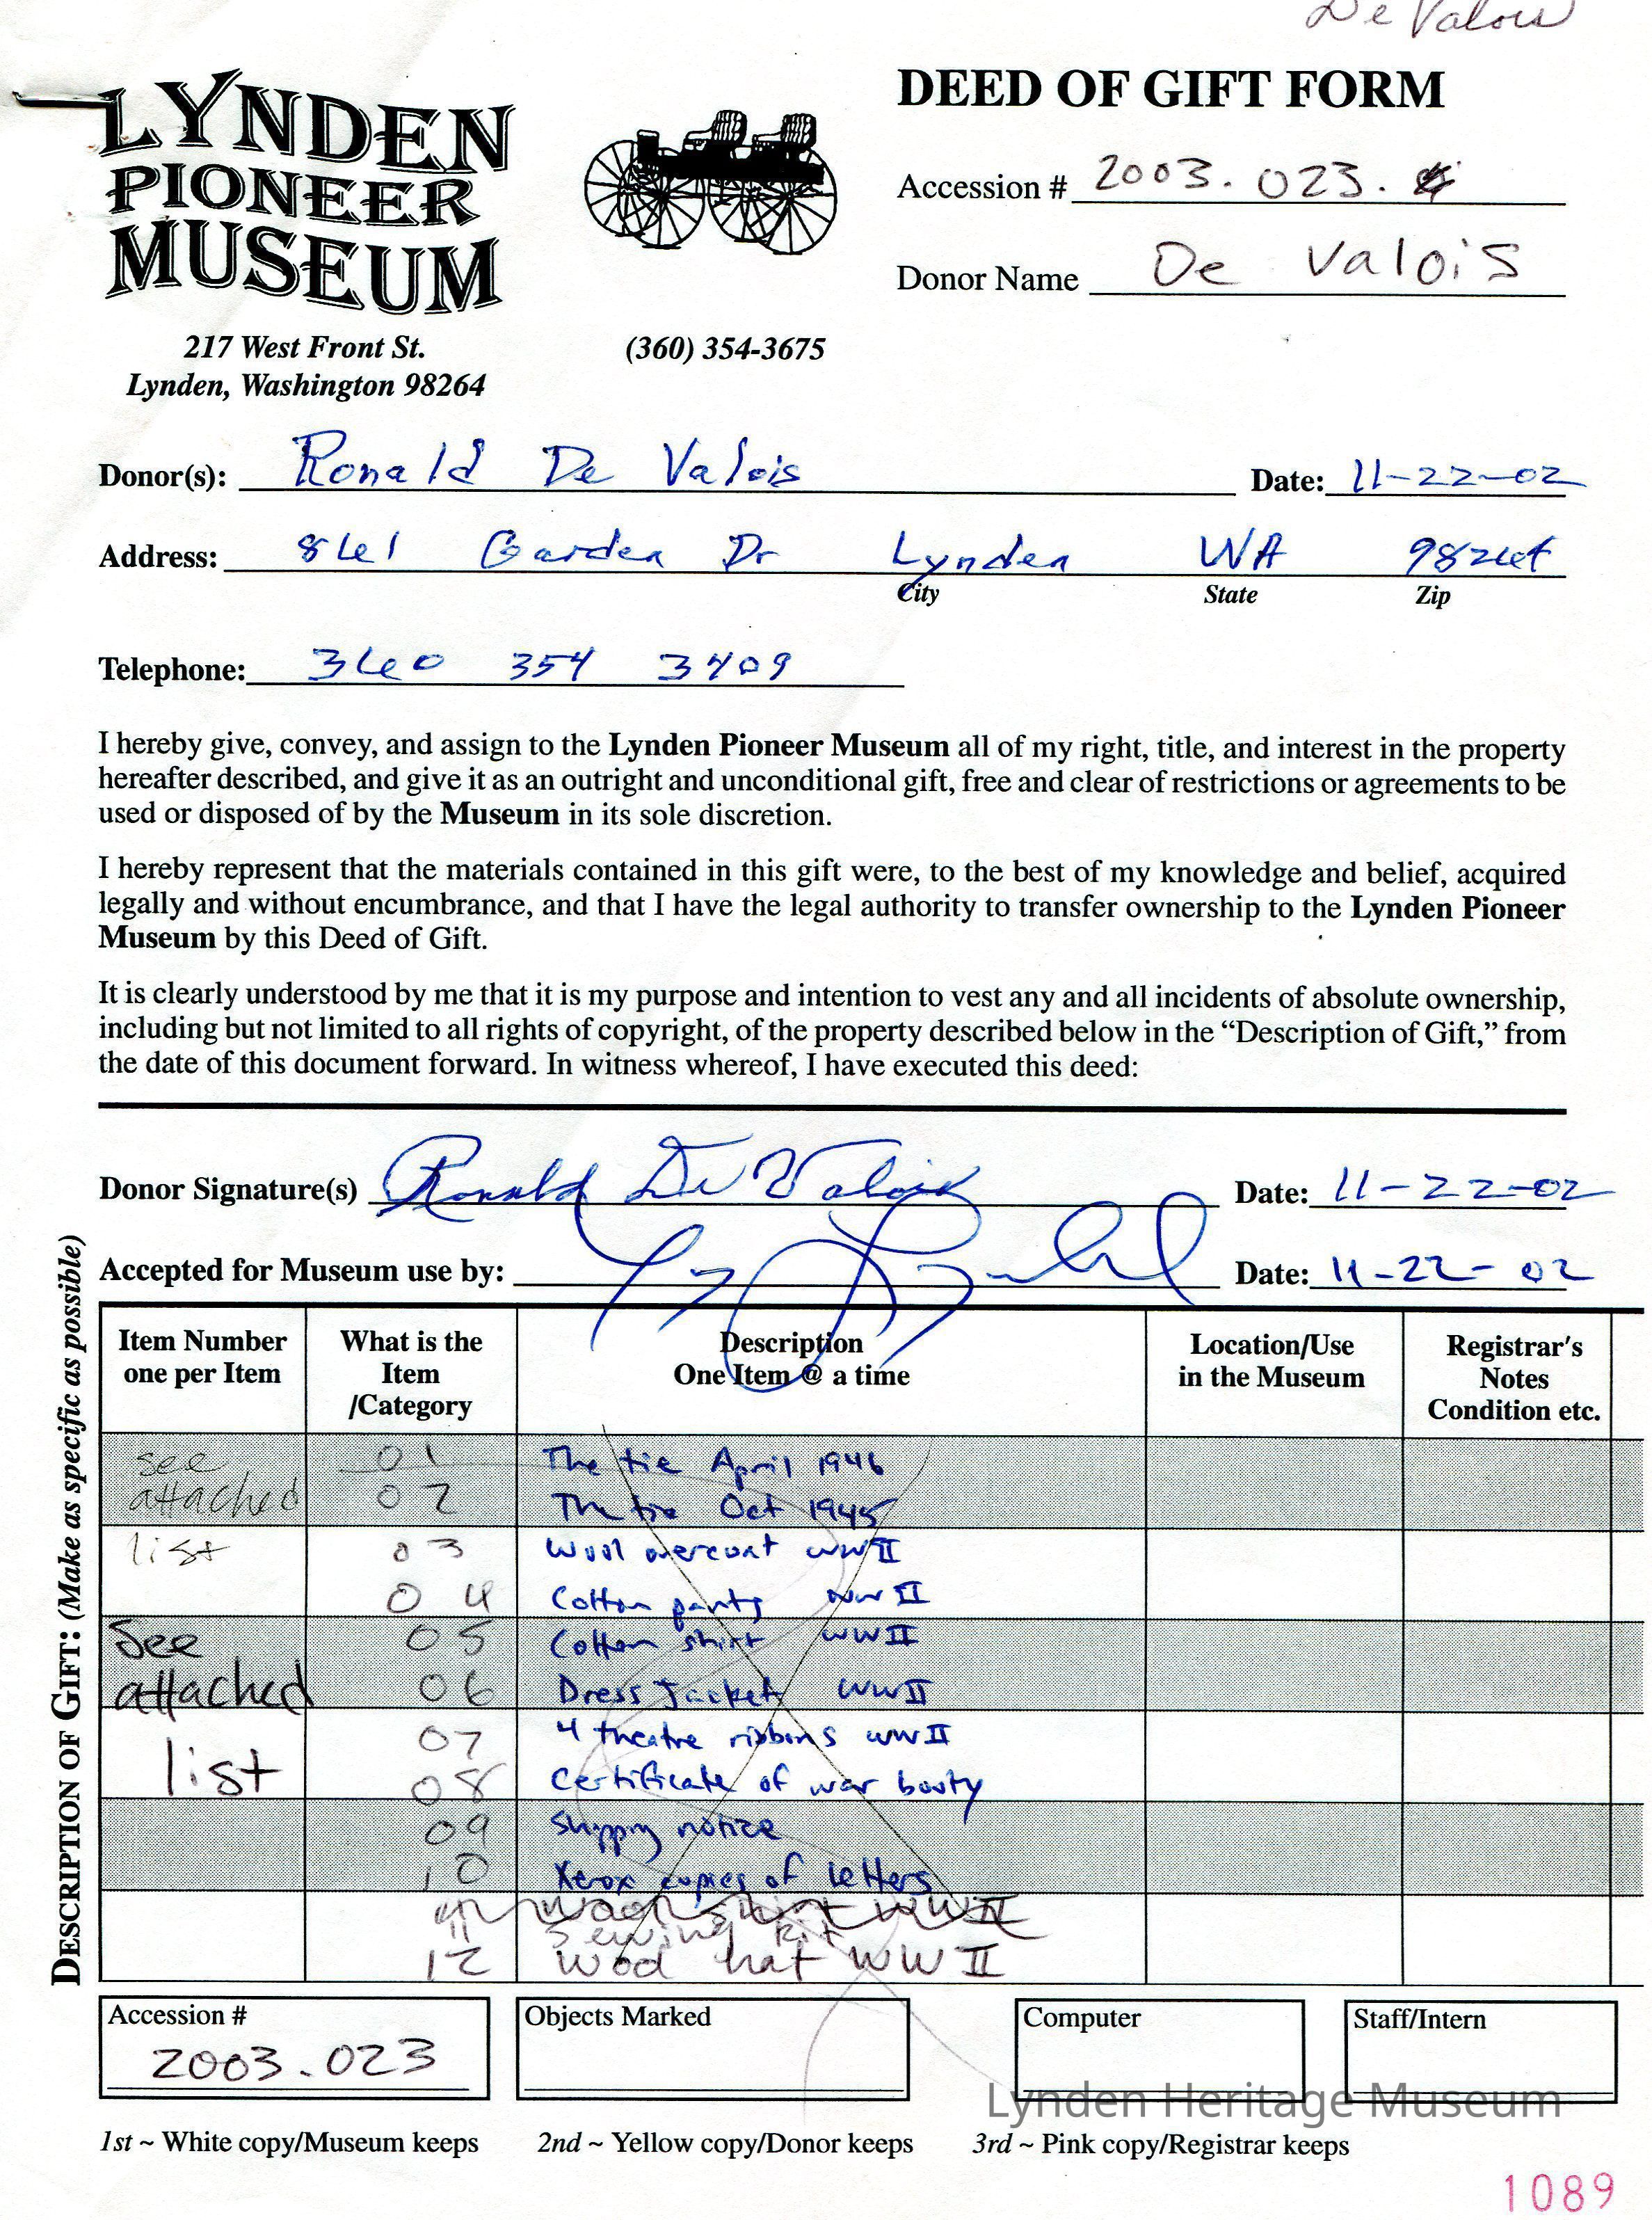 De Valois
LYNDEN
PIONEER
MUSEUM
217 West Front St.
Lynden, Washington 98264
(360) 354-3675
DEED OF GIFT FORM
Accession # 2003.023.
Donor Name De Valois
Donor(s): Ronald De Valois Date: 11-22-02
Address: 861 Garden Dr Lynden WA 98264
City State Zip
Telephone: 360 354 3409
I hereby give, convey, and assign to the Lynden Pioneer Museum all of my right, title, and interest in the property
hereafter described, and give it as an outright and unconditional gift, free and clear of restrictions or agreements to be
used or disposed of by the Museum in its sole discretion.
I hereby represent that the materials contained in this gift were, to the best of my knowledge and belief, acquired
legally and without encumbrance, and that I have the legal authority to transfer ownership to the Lynden Pioneer
Museum by this Deed of Gift.
It is clearly understood by me that it is my purpose and intention to vest any and all incidents of absolute ownership,
including but not limited to all rights of copyright, of the property described below in the “Description of Gift,” from
the date of this document forward. In witness whereof, I have executed this deed:
Donor Signature(s) Ronald De Valois Date: 11-22-02
Accepted for Museum use by: Date: 11-22-02
DESCRIPTION OF GIFT: (Make as specific as possible)
Item Number What is the Description Location/Use Registrar's
one per Item Item One Item @ a time in the Museum Notes
/Category Condition etc.
see 01 The tie April 1946
attached 02 The tie Oct 1945
list 03 Wool overcoat WWII
04 Cotton pants WWII
See 05 Cotton shirt WWII
attached 06 Dress Jacket WWII
07 4 theatre ribbons WWII
list 08 Certificate of war booty
09 Shipping notice
10 Xerox copies of letters
11 sewing kit
12 Wool hat WWII
Accession # Objects Marked Computer Staff/Intern
2003.023
Lynden Heritage Museum
1st ~ White copy/Museum keeps 2nd ~ Yellow copy/Donor keeps 3rd ~ Pink copy/Registrar keeps
1089